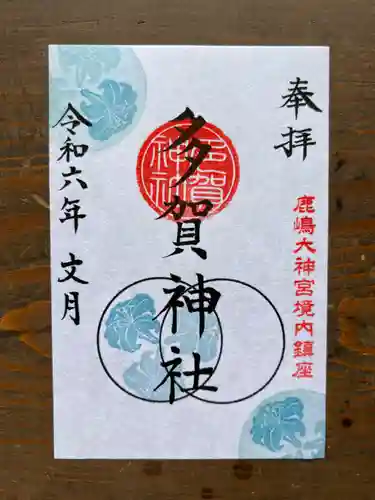 奉拝
鹿嶋大神宮境内鎮座
多賀神社
多賀神社
令和六年 文月